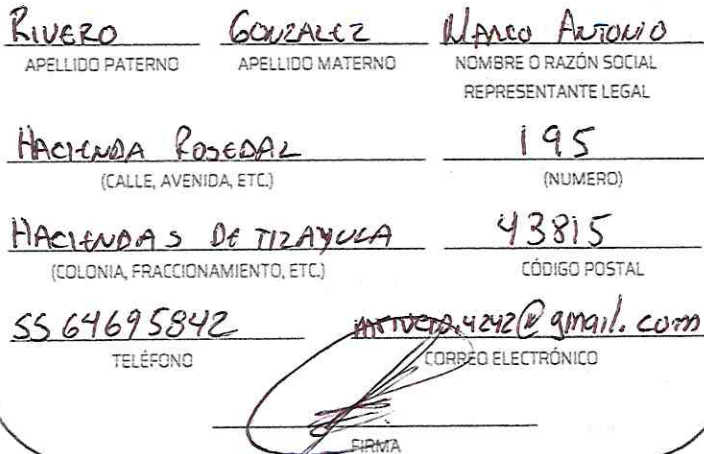 RIVERO GONZALEZ MARCO ANTONIO
APELLIDO PATERNO APELLIDO MATERNO NOMBRE O RAZÓN SOCIAL
REPRESENTANTE LEGAL
HACIENDA ROSEDAL 195
(CALLE, AVENIDA, ETC.) (NUMERO)
HACIENDAS DE TIZAYUCA 43815
(COLONIA, FRACCIONAMIENTO, ETC.) CÓDIGO POSTAL
5564695842 @gmail.com
TELÉFONO CORREO ELECTRÓNICO
FIRMA